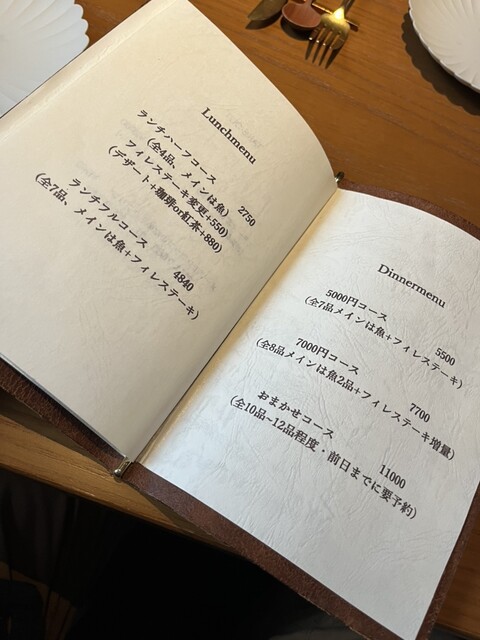 Lunchmenu
ランチハーフコース 2750
(全4品、メインは魚)
フィレステーキ変更+550)
(デザート+珈琲or紅茶+880)
ランチフルコース 4840
(全7品、メインは魚+フィレステーキ)
Dinnermenu
5000円コース 5500
(全7品メインは魚+フィレステーキ)
7000円コース 7700
(全8品メインは魚2品+フィレステーキ増量)
おまかせコース 11000
(全10品~12品程度・前日までに要予約)